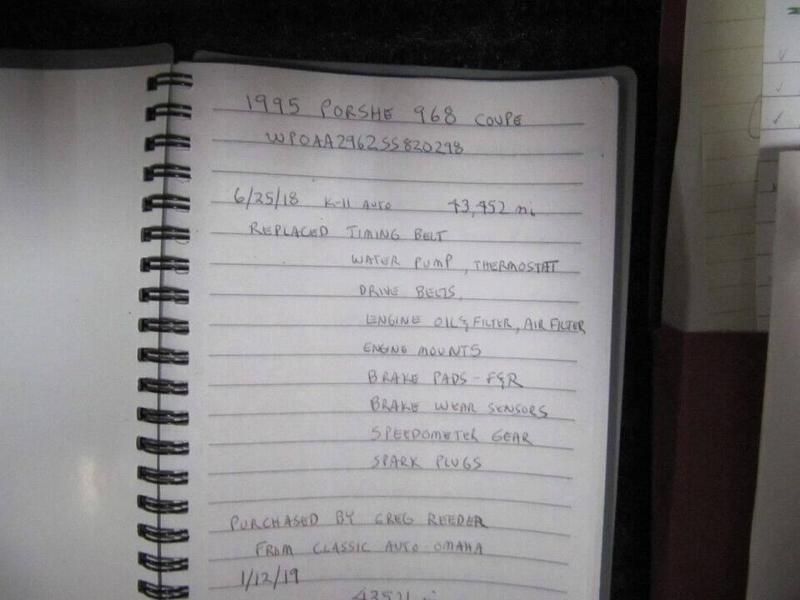 1995 PORSHE 968 COUPE
WPOAA2962SS820298
6/25/18 K-11 AUTO 43,452 mi
REPLACED TIMING BELT
WATER PUMP, THERMOSTAT
DRIVE BELTS,
ENGINE OIL & FILTER, AIR FILTER
ENGINE MOUNTS
BRAKE PADS - F&R
BRAKE WEAR SENSORS
SPEEDOMETER GEAR
SPARK PLUGS
PURCHASED BY GREG REEDER
FROM CLASSIC AUTO - OMAHA
1/12/19